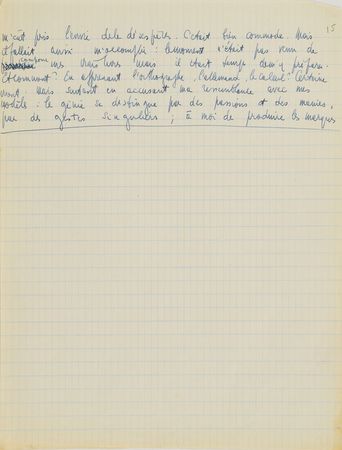 15
m'eût pris l'envie de le désespérer. C'était bien commode. Mais
il fallait aussi m'accomplir : le moment n'était pas venu de
composer
mes vrais livres mais il était temps de m'y préparer.
Et comment ? En apprenant l'orthographe, l'allemand, le calcul ? Certaine
ment, mais surtout en accusant ma ressemblance avec mes
modèles : le génie se distingue par des passions et des manies,
par des gestes singuliers ; à moi de produire les marques